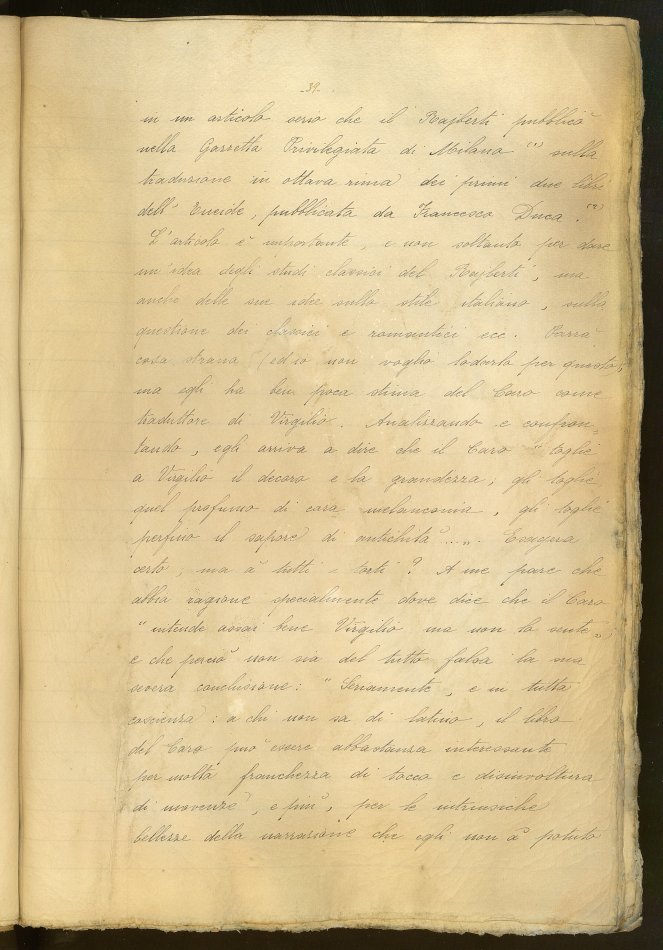 -39-
in un articolo serio che il Rajberti pubblicò
nella Gazzetta Privilegiata di Milano (1) sulla
traduzione in ottava rima dei primi due libri
dell'Eneide, pubblicata da Francesco Duca. (2)
L'articolo è importante, e non soltanto per dare
un'idea degli studi classici del Rajberti, ma
anche delle sue idee sullo stile italiano, sulla
questione dei classici e romantici ecc. Parrà
cosa strana (ed io non voglio lodarlo per questo)
ma egli ha ben poca stima del Caro come
traduttore di Virgilio. Analizzando e confron-
tando, egli arriva a dire che il Caro "toglie
a Virgilio il decoro e la grandezza; gli toglie
quel profumo di cara melanconia, gli toglie
perfino il sapore di antichità...„. Esagera
certo, ma à tutti i torti? A me pare che
abbia ragione specialmente dove dice che il Caro
"intende assai bene Virgilio ma non lo sente„,
e che perciò non sia del tutto falsa la sua
severa conclusione: "Seriamente, e in tutta
coscienza: a chi non sa di latino, il libro
del Caro può essere abbastanza interessante
per molta franchezza di tocco e disinvoltura
di movenze, e più, per le intrinsiche
bellezze della narrazione che egli non à potuto